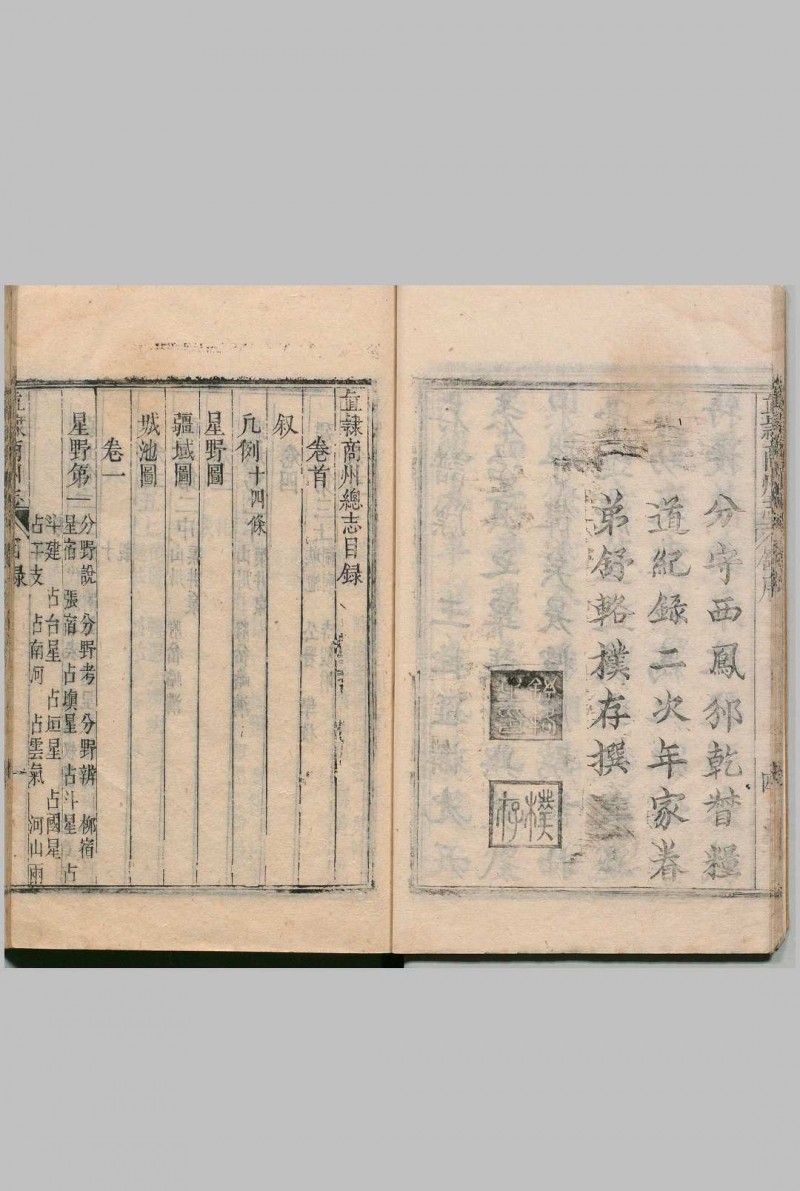 分守西鳳邠乾督糧
道紀錄二次年家眷
弟舒輅撲存撰
撲存
直隸商州總志目錄
卷首
叙
凡例十四條
星野圖
疆域圖
城池圖
卷一
星野第一
分野說 分野考 分野辨 柳宿
星宿 張宿 占填星 占斗星 占
斗建 占台星 占垣星 占國星
占干支 占南河 占雲氣 河山兩